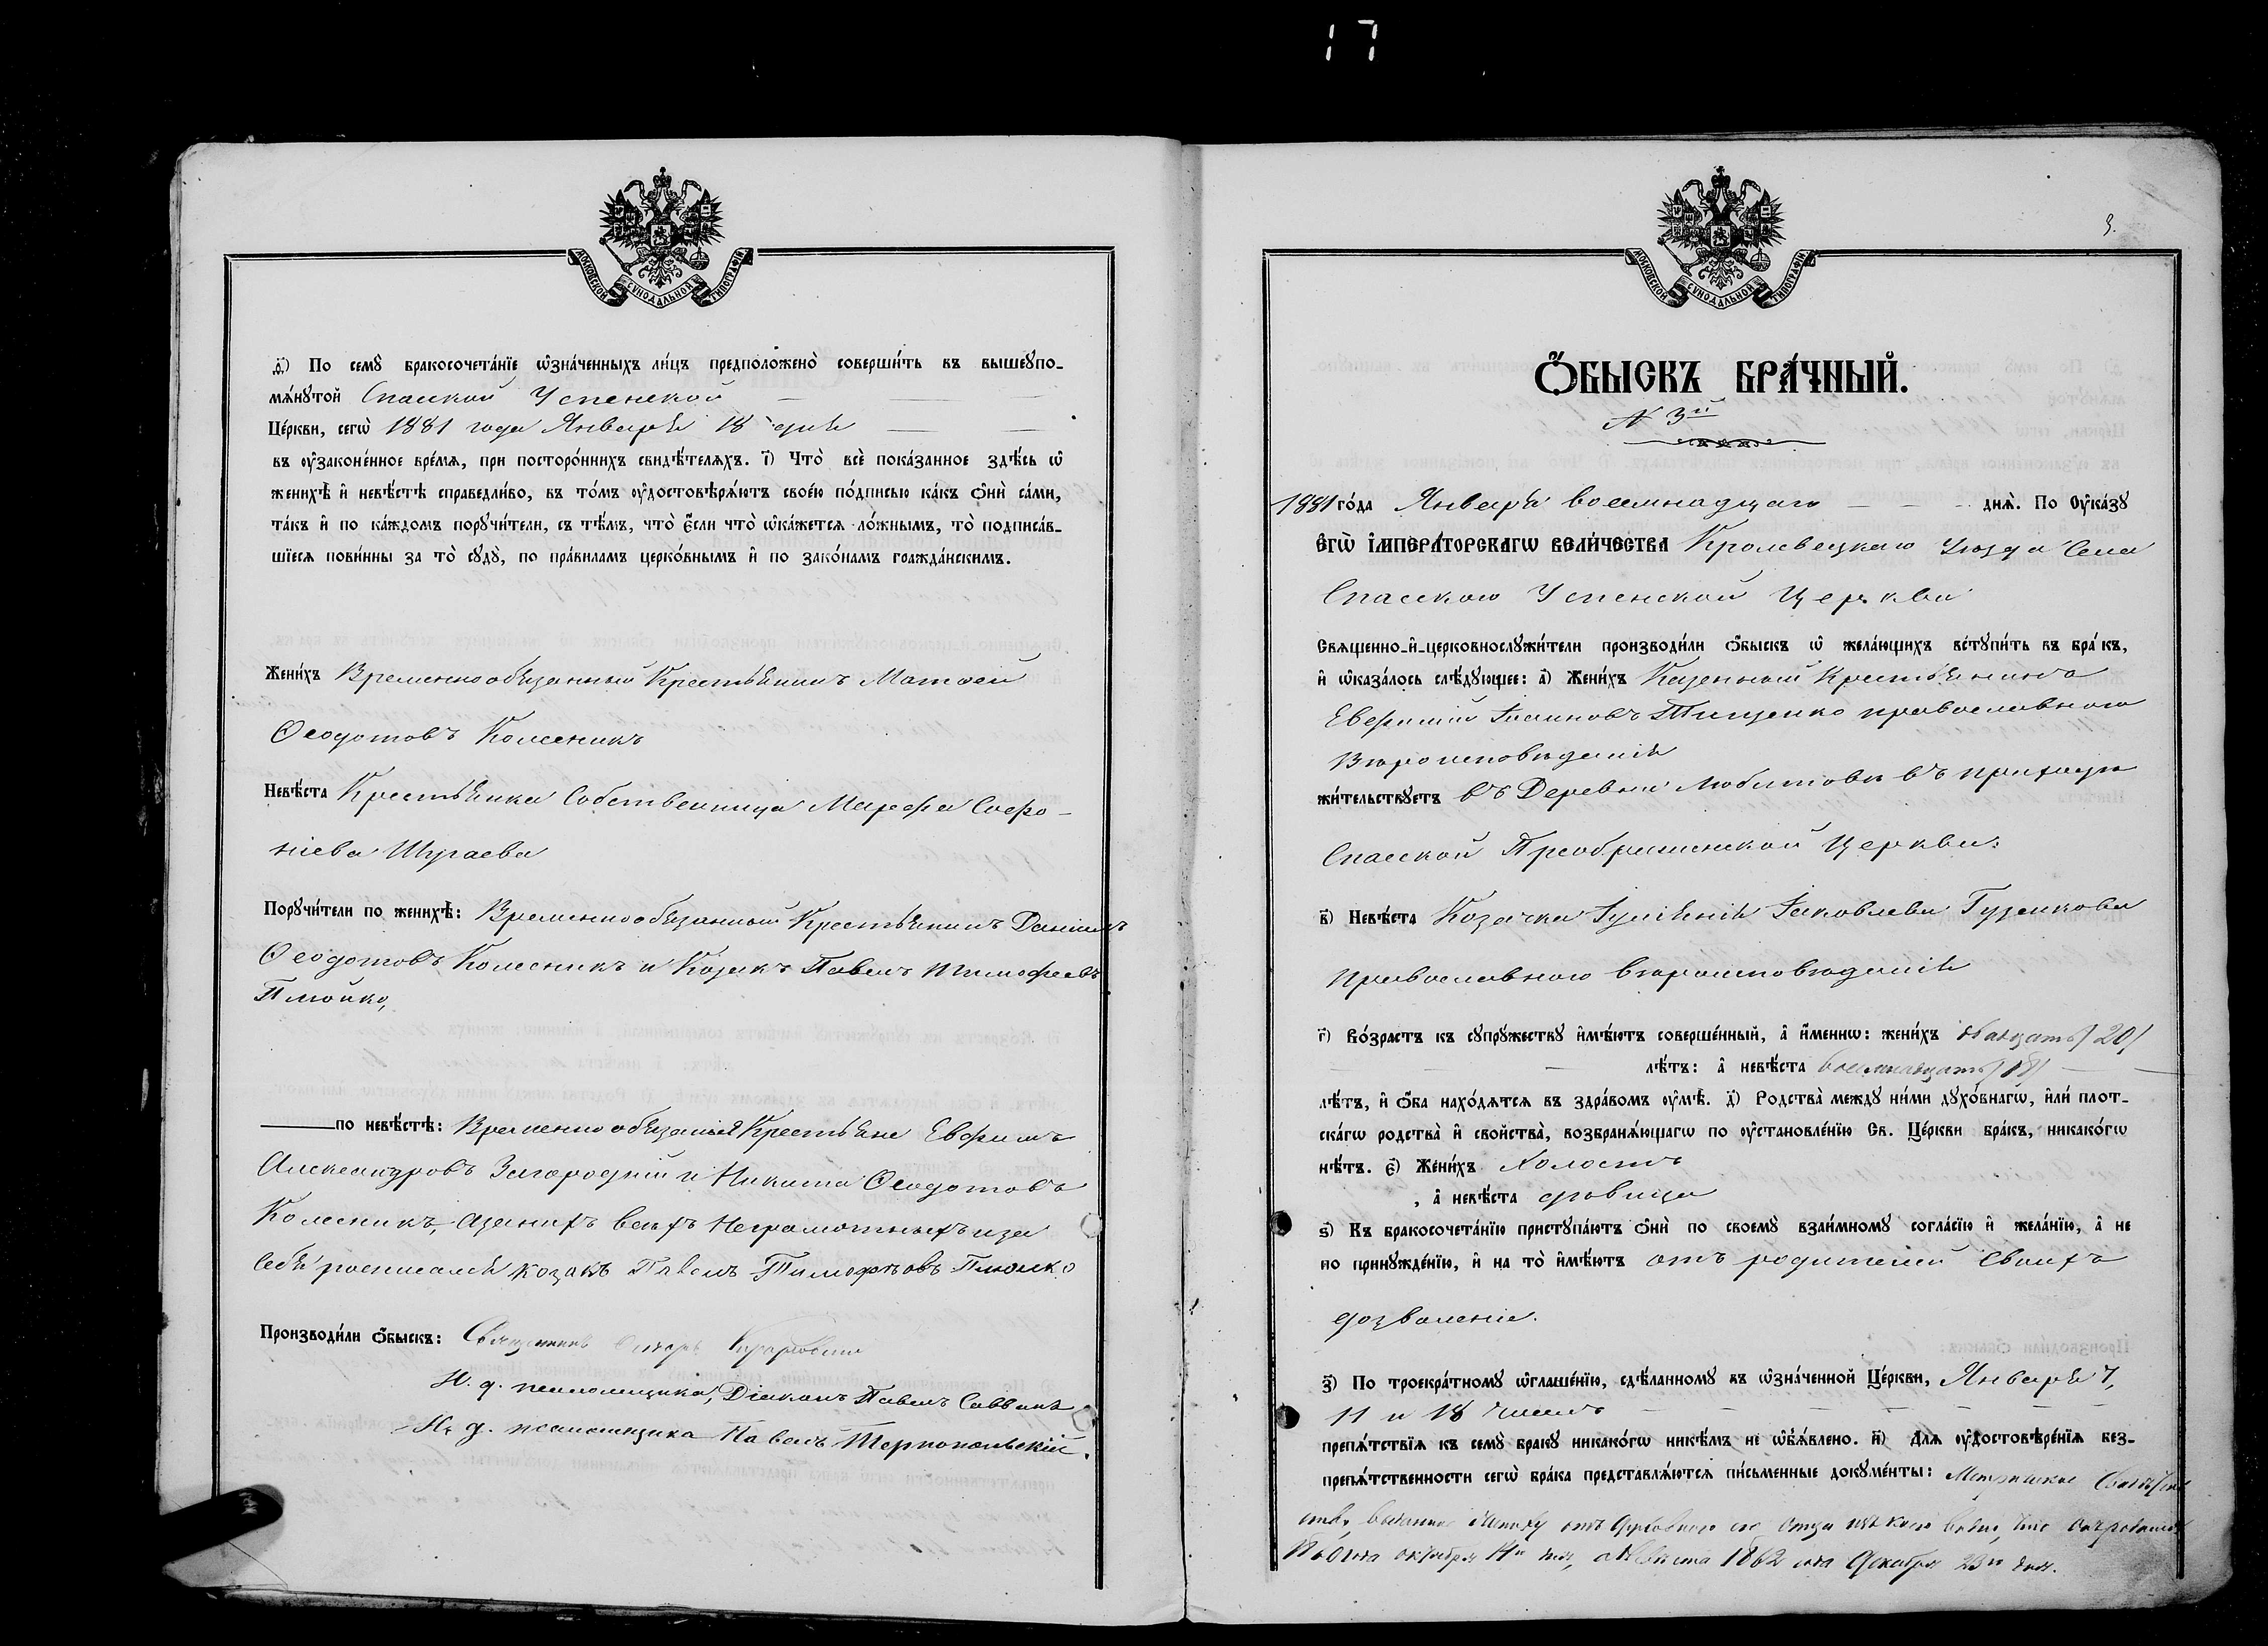 17
МОСКОВСКОЙ СѴНОДАЛЬНОЙ ТИПОГРАФІИ
д҃і) По семꙋ̀ бракосочета́нїе ѡ҆зна́ченныхъ ли́цъ предположено̀ соверши́ть въ вышеꙋпо-
мѧ́нꙋтой Спаской Успенской
Це́ркви, сегѡ̀ 1881 года Января 18 дня
въ ᲂу҆законе́нное вре́мѧ, при посторо́ннихъ свидѣ́телѧхъ. і҃) Что̀ всѐ пока́занное здѣ́сь ѡ҆
женихѣ̀ и҆ невѣ́стѣ справедли́во, въ то́мъ ᲂу҆достовѣрѧ́ютъ свое́ю по́дписью ка́къ ѻ҆нѝ са́ми,
та́къ и҆ по ка́ждомъ порꙋчи́тели, съ тѣ́мъ, что̀ є҆́сли что̀ ѡ҆ка́жетсѧ ло́жнымъ, то̀ подписа́в-
шїесѧ пови́нны за то̀ сꙋдꙋ̀, по пра́виламъ церко́внымъ и҆ по зако́намъ гражда́нскимъ.
Жени́хъ Временнообязанный Крестьянинъ Матѳей
Ѳеодотовъ Колесникъ
Невѣ́ста Крестьянка Собственница Марфа Софро-
ніева Шугаева
Порꙋчи́тели по женихѣ̀: Временнообязанный Крестьянинъ Даніилъ
Ѳеодотовъ Колесникъ и Козакъ Павелъ Тимофеевъ
Плюйко,
по невѣ́стѣ: Временнообязаные Крестьяне Евфимъ
Александровъ Загородній и Никита Ѳеодотовъ
Колесникъ, а за нихъ всѣхъ Неграмотныхъ и за
себя росписался козакъ Павелъ Тимофѣовъ Плюйко
Производи́ли ѻ҆́быскъ: Священникъ
И. д. псаломщика, Діаконъ Павелъ Саввинъ
И. д. псаломщика Павелъ Тернопольскій.
3.
МОСКОВСКОЙ СѴНОДАЛЬНОЙ ТИПОГРАФІИ
Ѻ҆БЫСКЪ БРА́ЧНЫЙ.
№ 3й
1881 го́да Января восемнадцаго днѧ̀. По Оу҆ка́зꙋ
Є҆ГѠ̀ І҆МПЕРА́ТОРСКАГѠ ВЕЛИ́ЧЕСТВА Кролевецкаго Уѣзда Села
Спаскаго Успенской Церкви
Свѧщенно-и҆-церковнослꙋжи́тели производи́ли ѻ҆́быскъ ѡ҆ жела́ющихъ встꙋпи́ть въ бра́къ,
и҆ ѡ҆каза́лось слѣ́дꙋющее: а҃) Жени́хъ Казенный Крестьянинъ
Евфимій Іоанновъ Тищенко православнаго
Вѣроисповѣданія
жи́тельствꙋетъ въ Деревни Любитовѣ въ приходѣ
Спаской Преображенской Церкви.
в҃) Невѣ́ста Козачка Іуліянія Іаковлева Гузенкова
Православнаго вѣроисповѣданія
г҃) Во́зрастъ къ сꙋпрꙋ́жествꙋ и҆мѣ́ютъ соверше́нный, а҆ и҆́меннѡ: жени́хъ двадцать /20/
лѣ́тъ: а҆ невѣ́ста восемнадцать /18/
лѣ́тъ, и҆ ѻ҆́ба нахо́дѧтсѧ въ здра́вомъ ᲂу҆мѣ̀. д҃) Родства̀ междꙋ ни́ми дꙋхо́внагѡ, и҆лѝ плот-
ска́гѡ родства̀ и҆ свойства̀, возбранѧ́ющагѡ по ᲂу҆становле́нїю Св. Це́ркви бра́къ, никако́гѡ
нѣ́тъ. є҃) Жени́хъ холостъ
, а҆ невѣ́ста дѣвица
ѕ҃) Къ бракосочета́нїю пристꙋпа́ютъ ѻ҆нѝ по своемꙋ̀ взаи́мномꙋ согла́сїю и҆ жела́нїю, а҆ не
по принꙋжде́нїю, и҆ на то̀ и҆мѣ́ютъ отъ родителей своихъ
дозволеніе.
з҃) По троекра́тномꙋ ѡ҆глаше́нїю, сдѣ́ланномꙋ въ ѡ҆зна́ченной Це́ркви, Января 7,
11 и 18 чиселъ
препѧ́тствїѧ къ семꙋ̀ бракꙋ никако́гѡ никѣ́мъ не ѡ҆б̾ѧ́влено. и҃) Длѧ ᲂу҆достовѣре́нїѧ без-
препѧ́тственности сегѡ̀ бра́ка представлѧ́ютсѧ пи́сьменные докꙋме́нты: Метрическое Свидѣтель
ство, выданное Жениху отъ духовнаго его отца изъ коего видно, что онъ родился
1860 года октября 14го дня, а Невѣста 1862 года Декабря 23го дня.